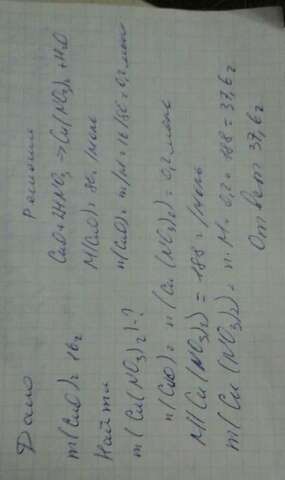 Дано
m(CuO)= 16г
Найти
m(Cu(NO3)2)-?
Решение
CuO+2HNO3 => Cu(NO3)2+H2O
M(CuO)= 80г/моль
n(CuO)= m/M= 16/80= 0,2 моль
n(CuO)= n(Cu(NO3)2)= 0,2 моль
M(Cu(NO3)2)= 188г/моль
m(Cu(NO3)2)= n·M= 0,2*188=37,6г
Ответ 37,6г